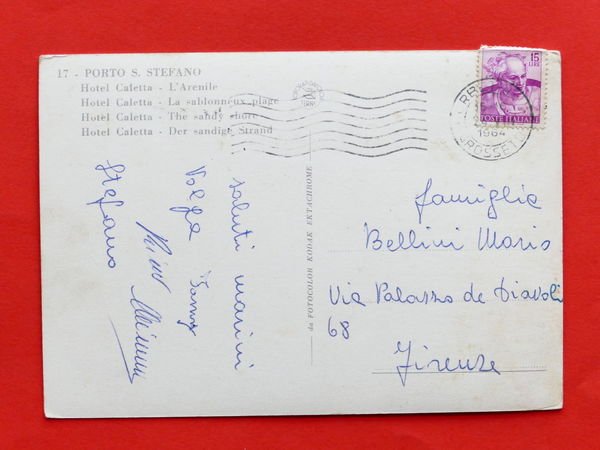 17 - PORTO S. STEFANO
Hotel Caletta - L'Arenile
Hotel Caletta - La sablonneux plage
Hotel Caletta - The sandy shore
Hotel Caletta - Der sandige Strand
15
LIRE
POSTE ITALIANE
1964
GROSSETO
da FOTOCOLOR KODAK EKTACHROME
saluti marini
Stefano
famiglia
Bellini Mario
Via Palazzo de Diavoli
68
Firenze